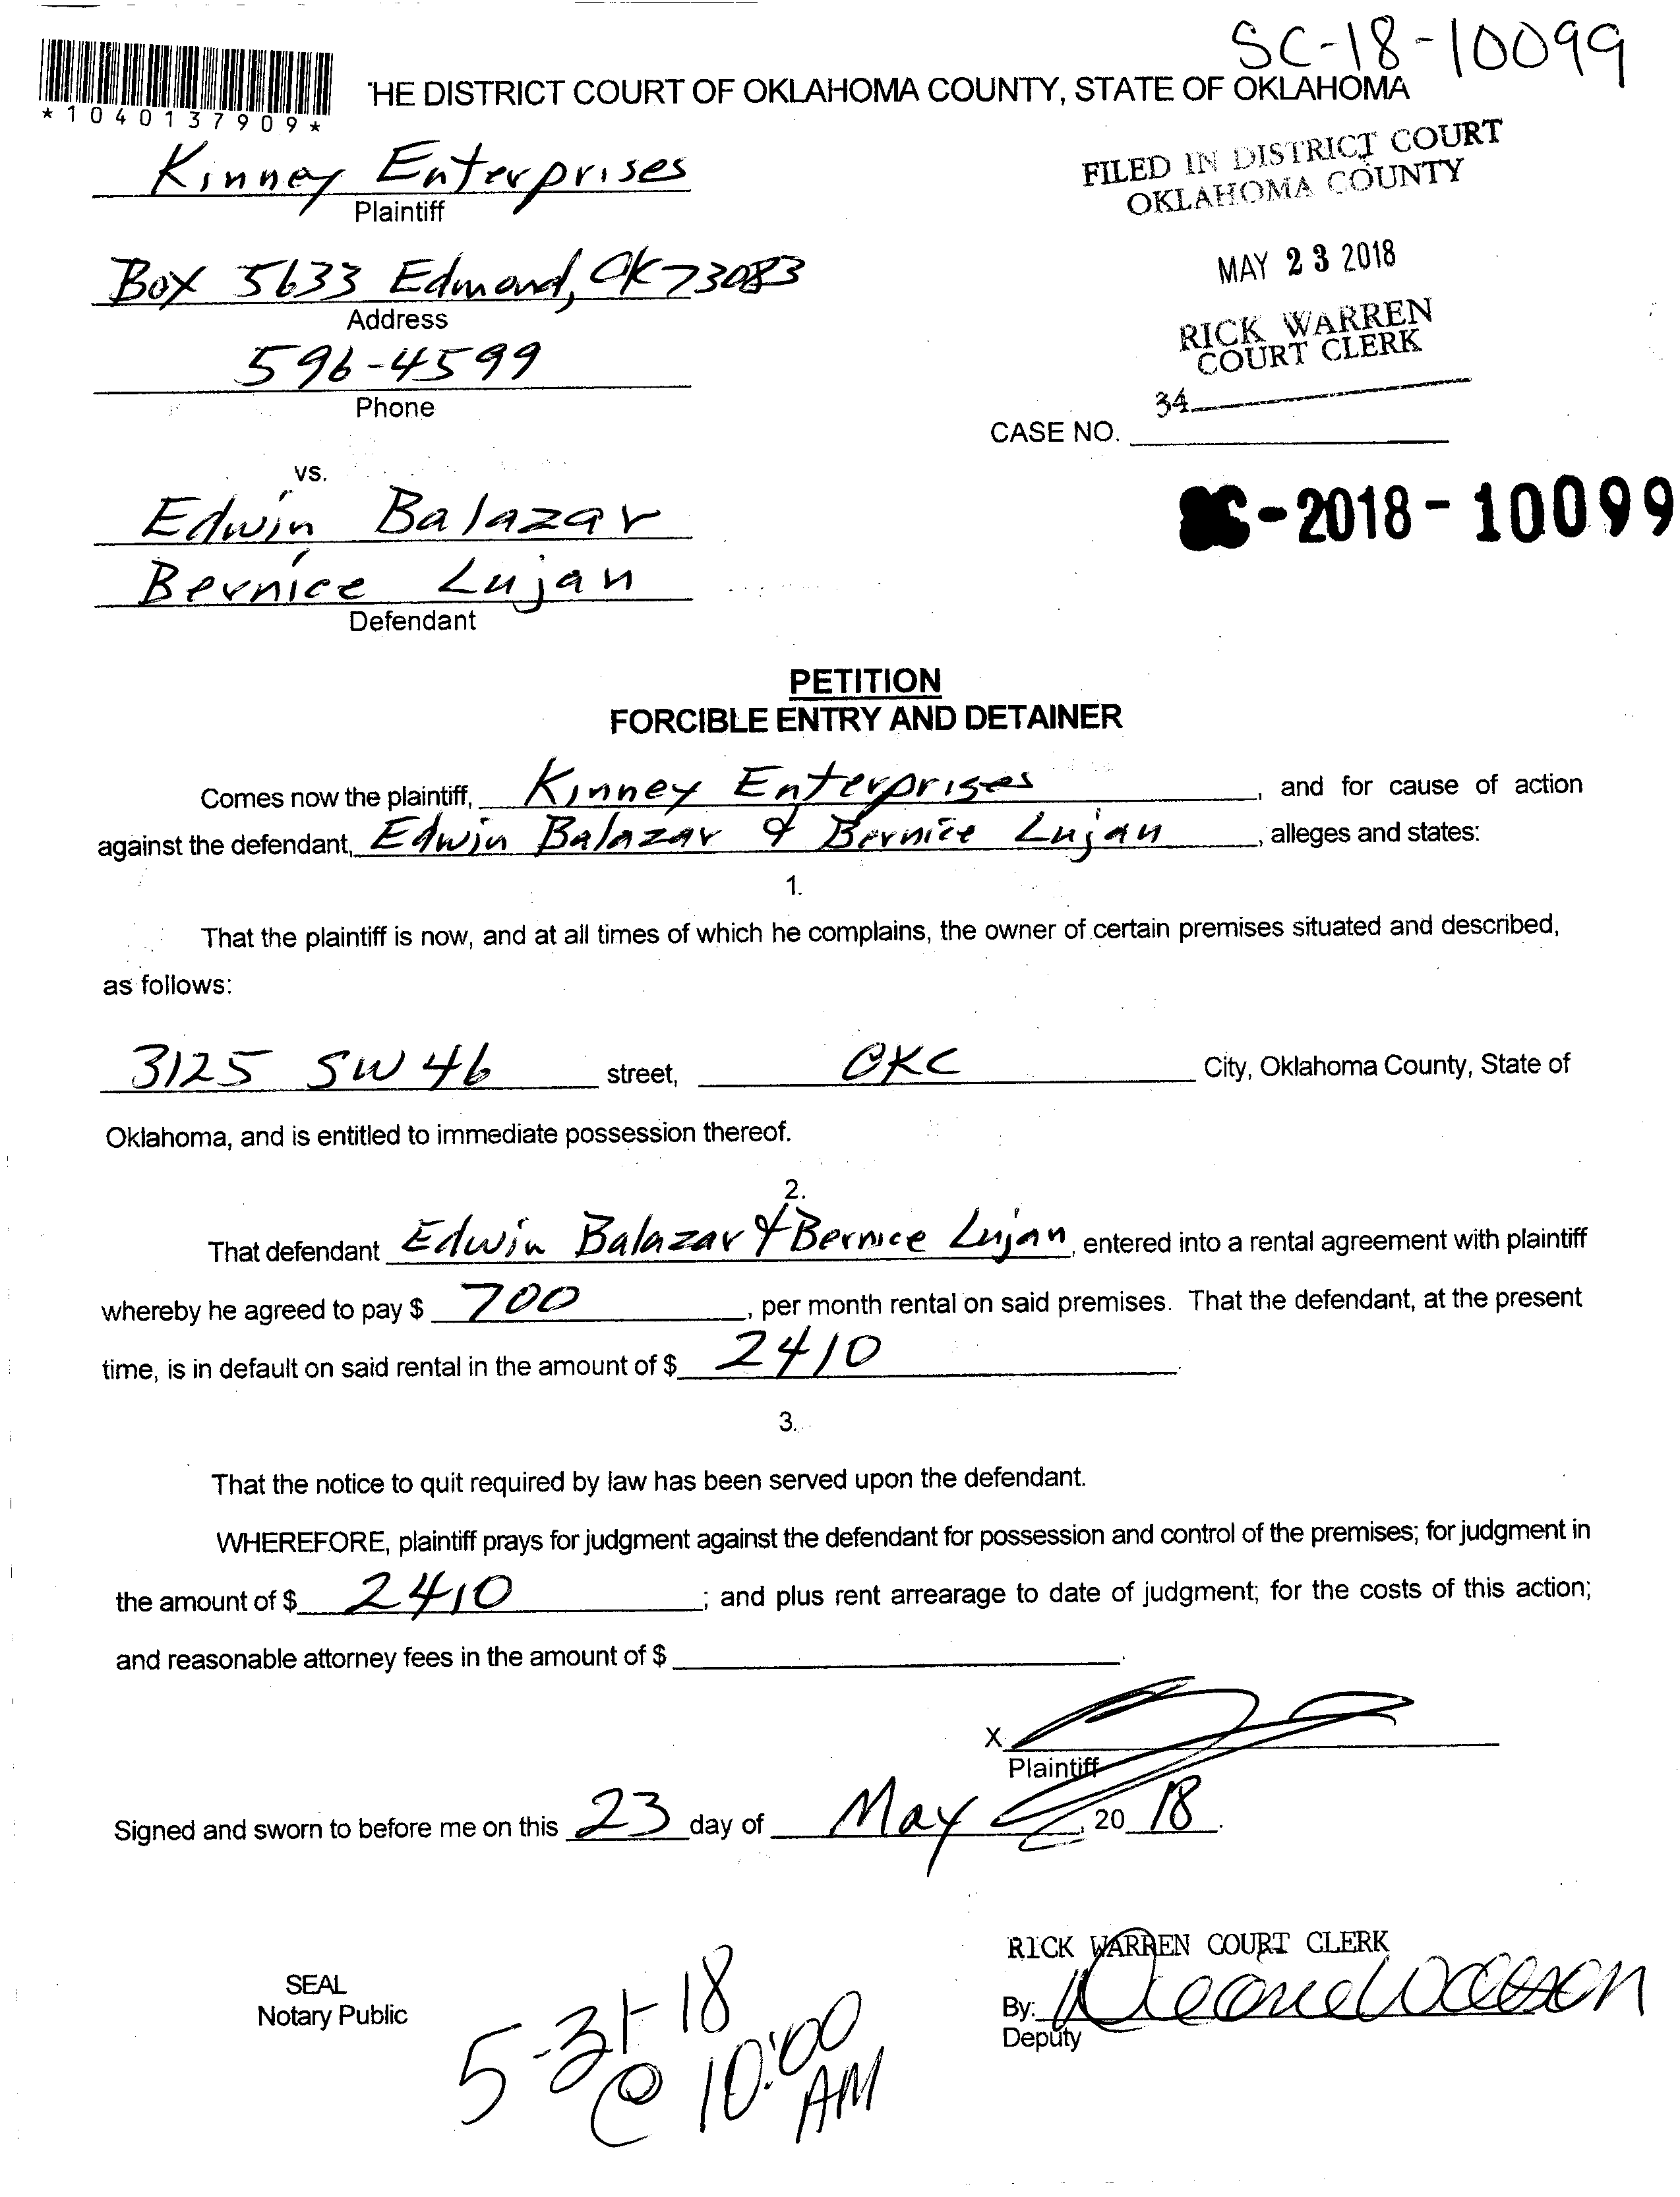 SC-18-10099
*1040137909*
HE DISTRICT COURT OF OKLAHOMA COUNTY, STATE OF OKLAHOMA
Kinney Enterprises
Plaintiff
FILED IN DISTRICT COURT
OKLAHOMA COUNTY
Box 5633 Edmond, OK 73083
Address
MAY 23 2018
596-4599
Phone
RICK WARREN
COURT CLERK
34
CASE NO.
vs.
Edwin Balazar
SC-2018-10099
Bernice Lujan
Defendant
PETITION
FORCIBLE ENTRY AND DETAINER
Comes now the plaintiff, Kinney Enterprises, and for cause of action
against the defendant, Edwin Balazar & Bernice Lujan, alleges and states:
1.
That the plaintiff is now, and at all times of which he complains, the owner of certain premises situated and described,
as follows:
3125 SW 46 street, OKC City, Oklahoma County, State of
Oklahoma, and is entitled to immediate possession thereof.
2.
That defendant Edwin Balazar & Bernice Lujan, entered into a rental agreement with plaintiff
whereby he agreed to pay $ 700, per month rental on said premises. That the defendant, at the present
time, is in default on said rental in the amount of $ 2410.
3.
That the notice to quit required by law has been served upon the defendant.
WHEREFORE, plaintiff prays for judgment against the defendant for possession and control of the premises; for judgment in
the amount of $ 2410; and plus rent arrearage to date of judgment; for the costs of this action;
and reasonable attorney fees in the amount of $ .
X
Plaintiff
Signed and sworn to before me on this 23 day of May, 20 18.
RICK WARREN COURT CLERK
SEAL
Notary Public
By:
Deputy
5-31-18
@ 10:00
AM